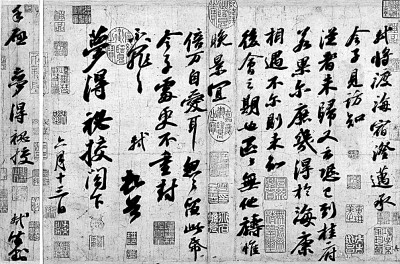 軾將渡海宿澄邁承
令子見訪知
從者未歸又云恐已到桂府
若果爾庶幾得於海康
相遇不爾則未知
後會之期也區區無他禱惟
晚景宜
倍万自愛耳忽忽留此帋
令子處更不重封
不罪不罪 軾 頓首
夢得秘校閣下
六月十三日
手啟 夢得秘校 軾封